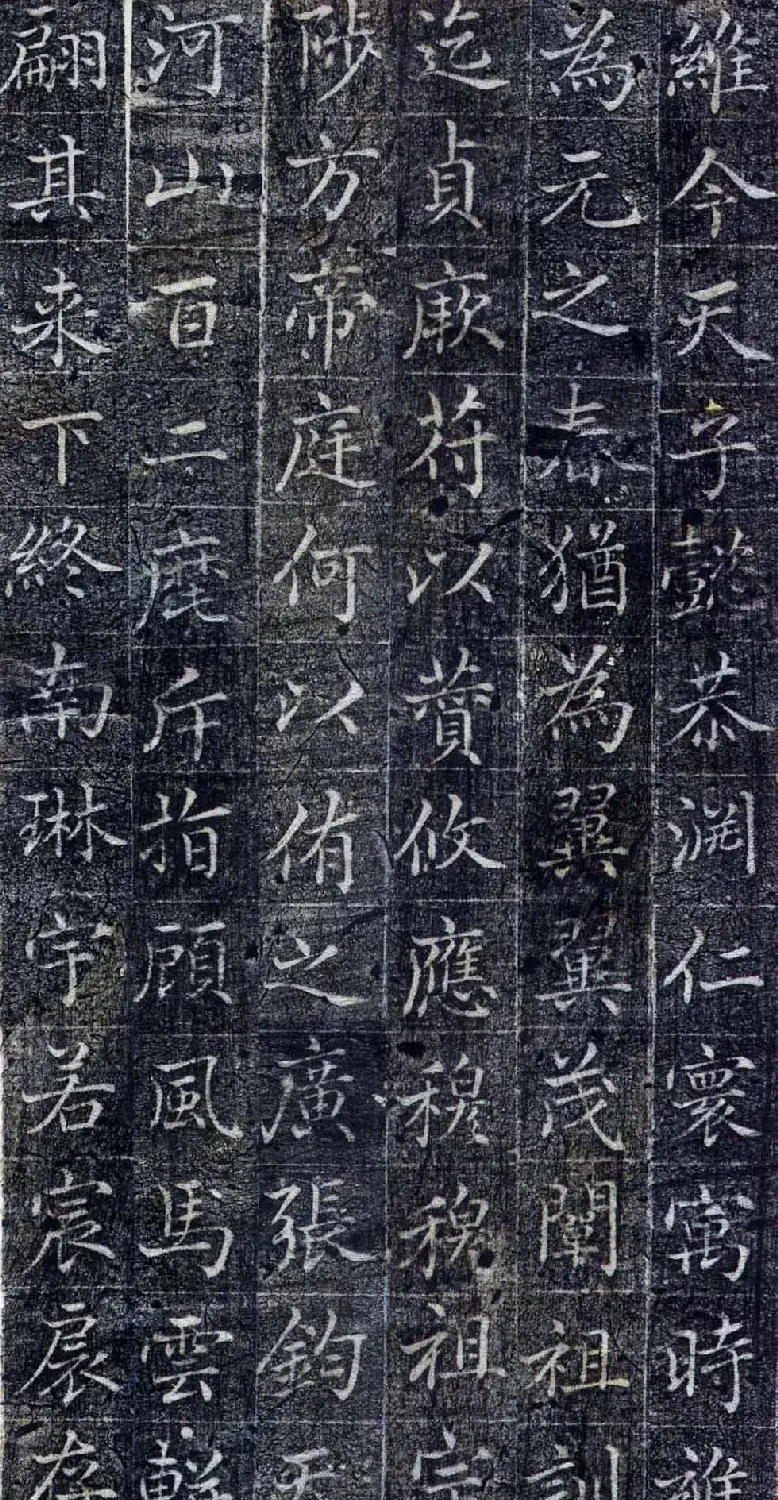 維今天子懿恭淵仁寰寓時雍
為元之忞猶為翼翼茂闡祖訓
迄貞厥符以薲攸應穆穆祖宗
陟方帝庭何以侑之廣張鈞天
河山百二麾斥指顧風馬雲軿
翩其来下終南琳宇若宸扆存